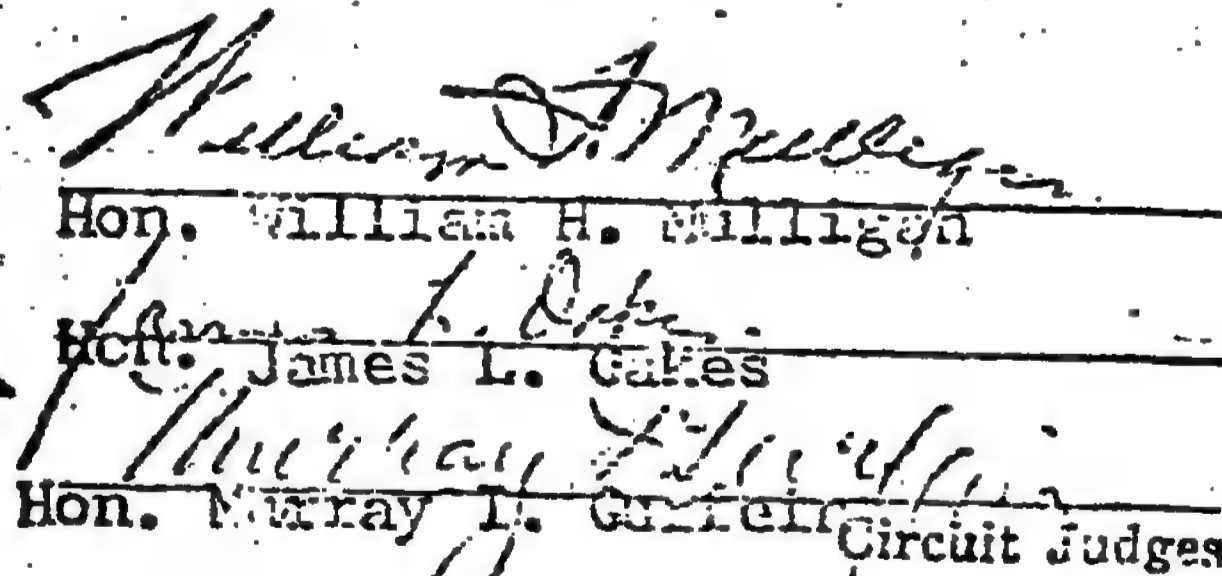 William H. Mulligan
Hon. William H. Mulligan
James L. Oakes
Hon. James L. Oakes
Murray I. Gurfein
Hon. Murray I. Gurfein
Circuit Judges